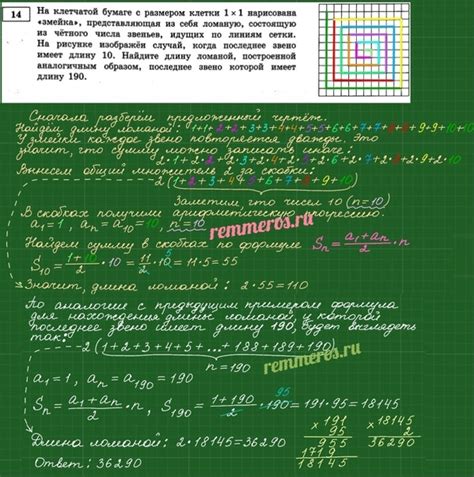 14
На клетчатой бумаге с размером клетки 1 × 1 нарисована
«змейка», представляющая из себя ломаную, состоящую
из чётного числа звеньев, идущих по линиям сетки.
На рисунке изображён случай, когда последнее звено
имеет длину 10. Найдите длину ломаной, построенной
аналогичным образом, последнее звено которой имеет
длину 190.
Сначала разберём предложенный чертёж.
Найдём длину ломаной: 1+1+2+2+3+3+4+4+5+5+6+6+7+7+8+8+9+9+10+10
У змейки каждое звено повторяется дважды. Это
значит, что сумму можно записать иначе:
2·1+2·2+2·3+2·4+2·5+2·6+2·7+2·8+2·9+2·10
Вынесем общий множитель 2 за скобки:
2(1+2+3+4+5+6+7+8+9+10)
Заметим, что чисел 10 (n=10)
В скобках получили арифметическую прогрессию.
a₁=1, aₙ=a₁₀=10, n=10
remmeros.ru
Найдём сумму в скобках по формуле Sₙ = (a₁+aₙ)/2 · n
S₁₀ = (1+10)/2 · 10 = 11/2 · 10 = 11·5 = 55
5
Значит, длина ломаной: 2·55=110
По аналогии с предыдущим примером формула
для нахождения длины ломаной, у которой
последнее звено имеет длину 190, будет выглядеть
так:
2(1+2+3+4+5+...+188+189+190)
n=190
remmeros.ru
a₁=1, aₙ=a₁₉₀=190
95
Sₙ = (a₁+aₙ)/2 · n, S₁₉₀ = (1+190)/2 · 190 = 191·95 = 18145
Длина ломаной: 2·18145=36290
Ответ: 36290
× 191
95
955
1719
18145
× 18145
2
36290